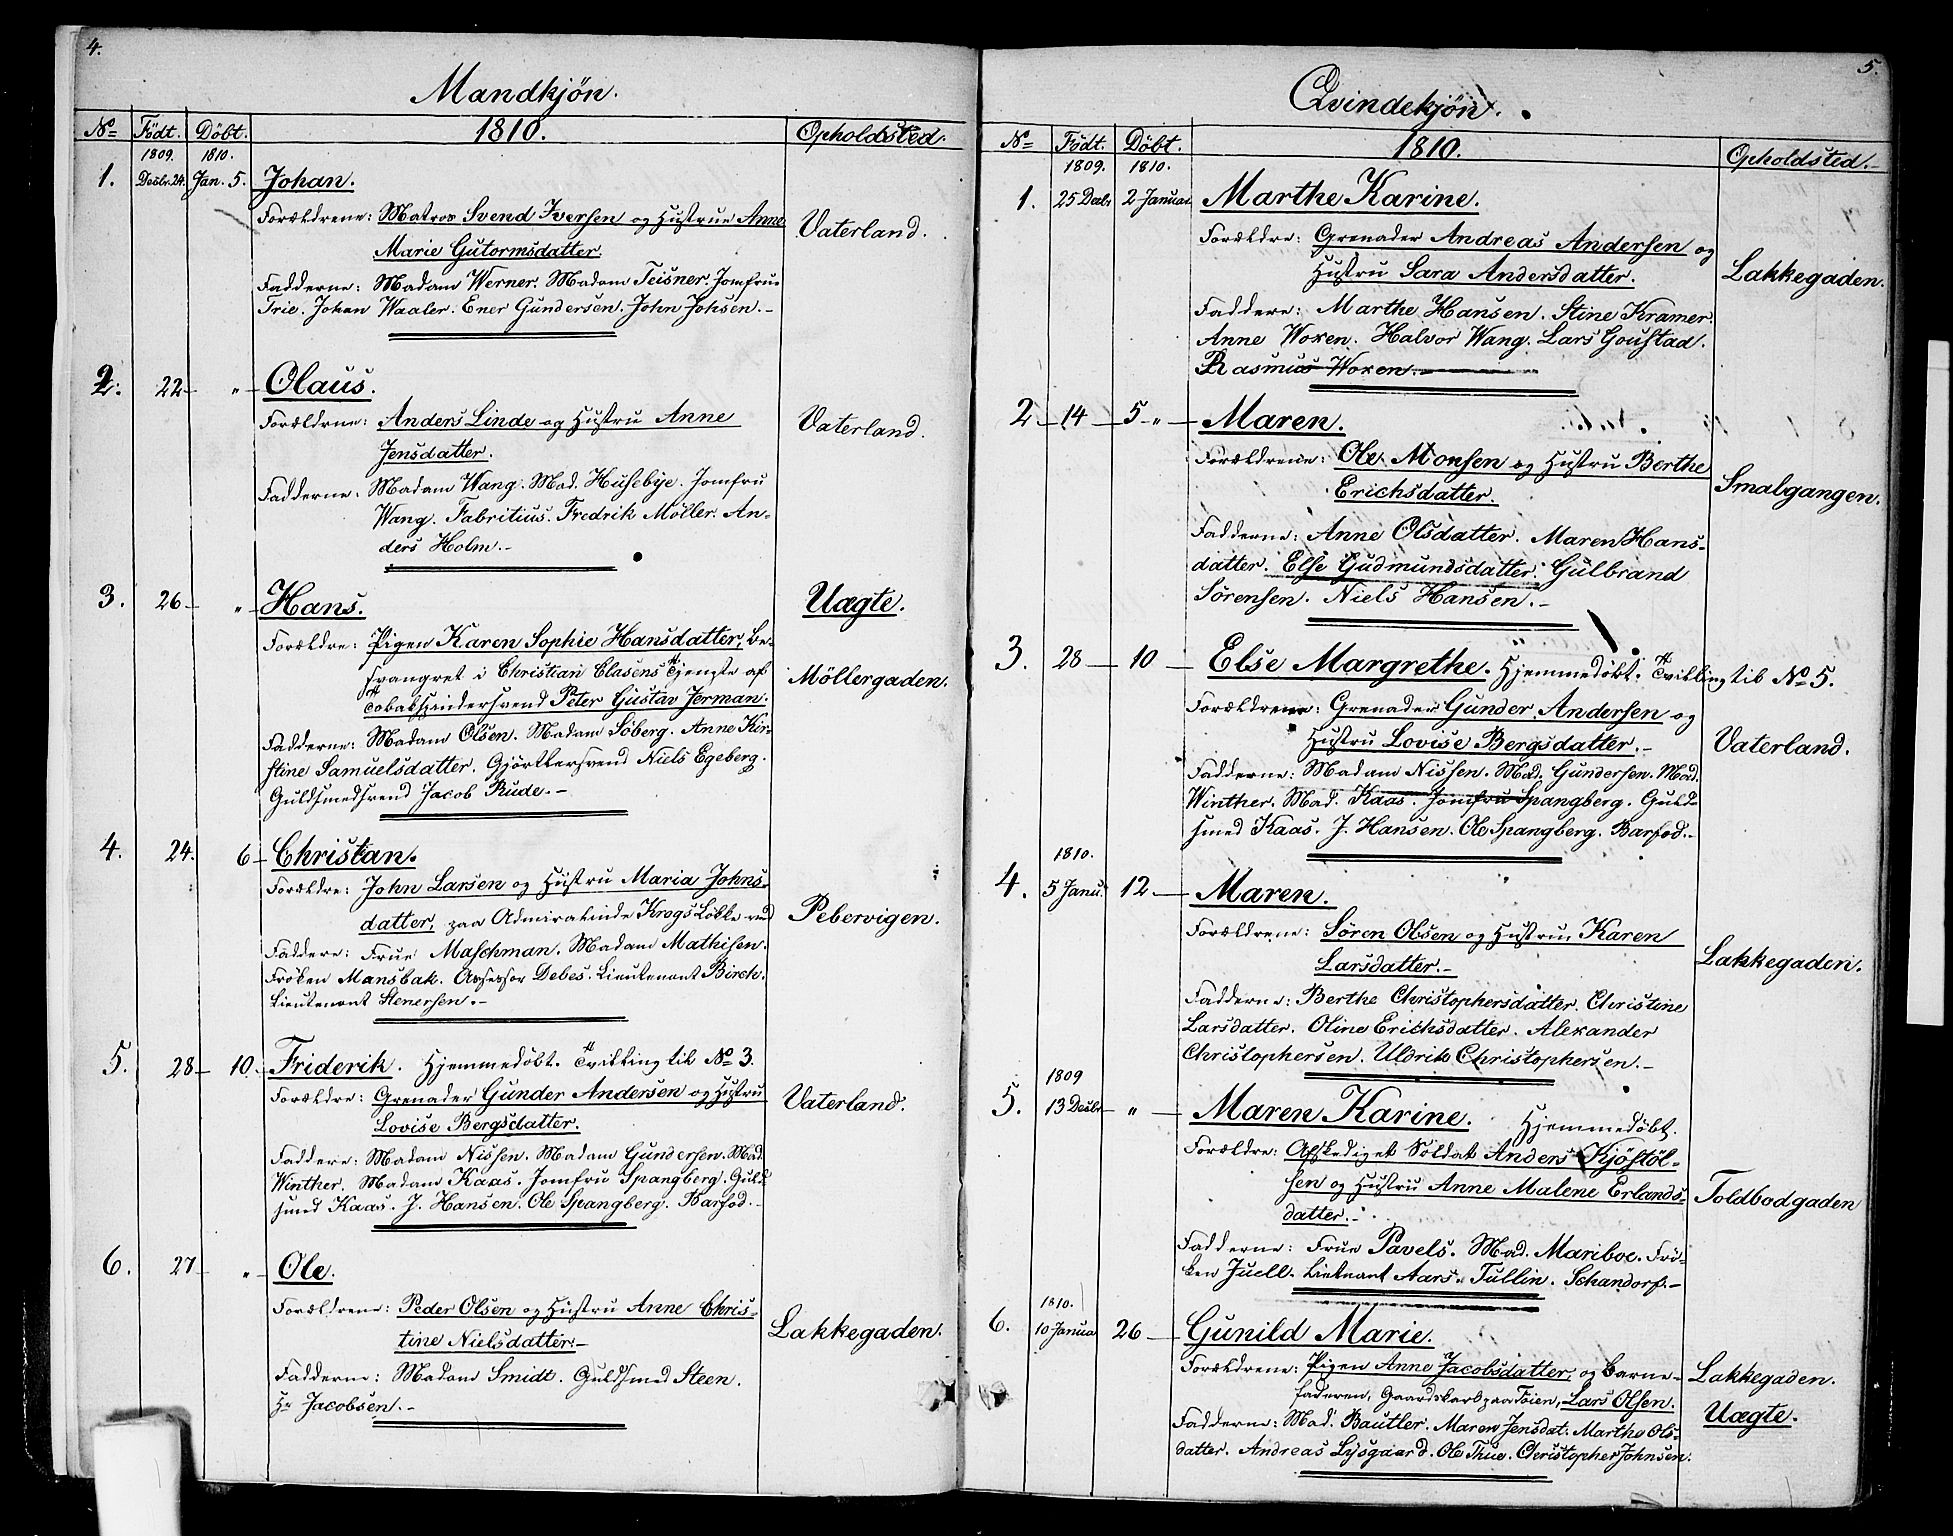 4.
Mandkjön.
No Födt. Döbt. 1810. Opholdsted.
1809. 1810.
1. Decbr. 24. Jan. 5. Johan.
Forældrene: Matros Svend Iversen og Hustrue Anne
Marie Gutormsdatter.
Vaterland.
Fadderne: Madam Werner. Madam Teisner. Jomfrue
Trie. Johan Waaler. Ener Gundersen. John Johsen.-
2. 22 - " - Olaus.
Forældrne: Anders Linde og Hustru Anne
Jensdatter.
Vaterland.
Fadderne: Madam Wang. Mad. Husebÿe. Jomfru
Wang. Fabritius. Fredrik Möller. An-
ders Holm.-
3. 26 - " - Hans. Uægte.
Forældre: Pigen Karen Sophie Hansdatter, be-
svangret i Christian Clasens Tjeneste af
Tobakspinderswend Peter Gustav Jerman.
Möllergaden.
Fadderne: Madam Olsen. Madam Söberg. Anne Kir-
stine Samuelsdatter. Gjörtlersvend Niels Egeberg.
Guldsmedsvend Jacob Rude.-
4. 24. 6 - Christan.
Forældre: John Larsen og Hustru Maria Johns-
datter, paa Admiralinde Krogs Løkke ved
Pebervigen.
Faddere: Frue Maschman. Madam Mathisen.
Fröken Mansbak. Assessor Debes. Lieutenant Birch.
Lieutenant Stenersen.-
5. 28 - 10. Friderik. Hjemmedöbt. Tvilling til No 3.
Forældre: Grenader Gunder Andersen og Hustru
Lovise Bergsdatter.
Vaterland.
Faddere: Madam Nissen. Madam Gundersen. Mad.
Winther. Madam Kaas. Jomfru Spangberg. Guld-
smed Kaas. J. Hansen. Ole Spangberg. Barfod.-
6. 27 - " - Ole.
Forældrene: Peder Olsen og Hustru Anne Chris-
tine Nielsdatter.-
Lakkegaden.
Fadderne: Madam Smidt. Guldsmed Steen.
Hr Jacobsen.-
5.
Qvindekjön.
No Födt. Döbt. 1810. Opholdsted.-
1809. 1810.
1. 25 Decbr 2 Januar. Marthe Karine.
Forældre: Grenader Andreas Andersen og
Hustru Sara Andersdatter.
Lakkegaden.
Faddere: Marthe Hansen. Stine Kramer.
Anne Woxen. Halvor Wang. Lars Goustad.
Rasmus Woxen.-
2 - 14 - 5 - " - Maren.
Forældrene: Ole Monsen og Hustru Berthe
Erichsdatter.
Smalgangen.
Fadderne: Anne Olsdatter. Maren Hans-
datter. Else Gudmundsdatter. Gulbrand
Sörensen. Niels Hansen.-
3. 28 - 10 - Else Margrethe. Hjemmedöbt. Tvilling til No 5.
Forældrene: Grenader Gunder Andersen og
Hustru Lovise Bergsdatter.-
Vaterland.
Fadderne: Madam Nissen. Mad. Gundersen. Mad.
Winther. Mad. Kaas. Jomfru Spangberg. Guld-
smed Kaas. J. Hansen. Ole Spangberg. Barfod.-
1810.
4. 5 Janu. 12 - Maren.
Forældrene: Sören Olsen og Hustrue Karen
Larsdatter.-
Lakkegaden.
Fadderne: Berthe Christophersdatter. Christine
Larsdatter. Oline Erichsdatter. Alexander
Christophersen. Uldrik Christophersen.-
1809
5. 13 Decbr - " - Maren Karine. Hjemmedöbt.
Forældre: Afskediget Soldat Anders Kjöstöl-
sen og Hustru Anne Malene Erlands-
datter.-
Toldbodgaden
Fadderne: Frue Pavels. Mad. Mariboe. Frö-
ken Juell. Lietnant Aars. Tullin. Schandorf.-
1810.
6. 10 Janua 26 - Gunild Marie.
Forældrene: Pigen Anne Jacobsdatter, og Barne-
faderen, Gaardskarl paa Töien, Lars Olsen.
Lakkegaden.
Uægte.
Fadderne: Mad. Bautler. Maren Jensdat. Marthe Ols-
datter. Andreas Lysgaard. Ole Thue. Christopher Johnsen.